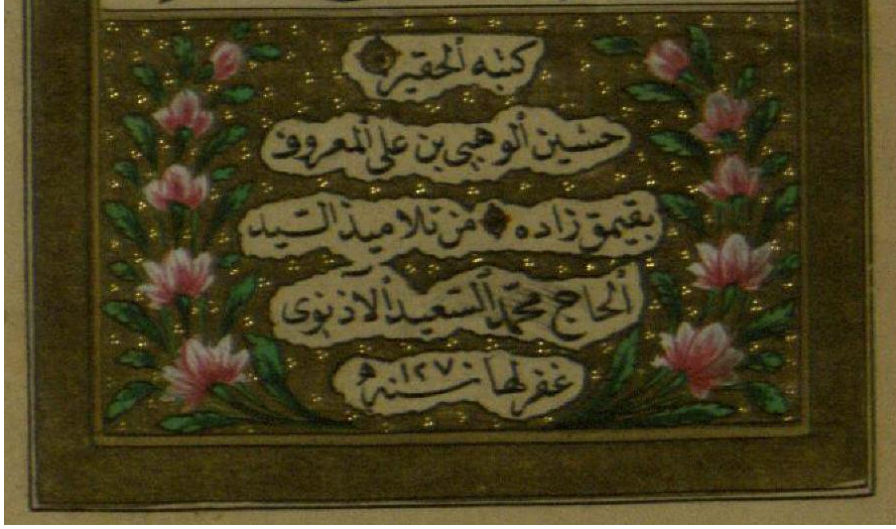 كتبه ألحقير
حسين ألوهبي بن علي ألمعروف
بقيمق زاده من تلاميذ السيد
ألحاج محمد ألسعيد ألاذنوى
غفر لهما سنة ١٢٧٠ ه